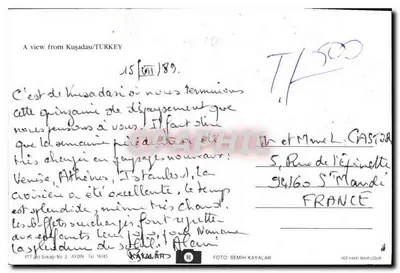 A view from Kuşadası/TURKEY
T/500
15/VII/89.
C'est de Kusadasi où nous terminions
cette quinzaine de dépaysement que
nous pensons à vous. Il faut dire
que la semaine précédente
très chargée en paysages nouveaux:
Venise, Athènes, Istanbul, la
croisière a été excellente. le temps
est splendide, même très chaud.
les buffets surchargés font
aux enfants
la splendeur du soleil! Alain
M et Mme L. CASTOR
5, Rue de l'Épinette
94160 St Mandé
FRANCE
KAYALAR
FOTO: SEMİH KAYALAR